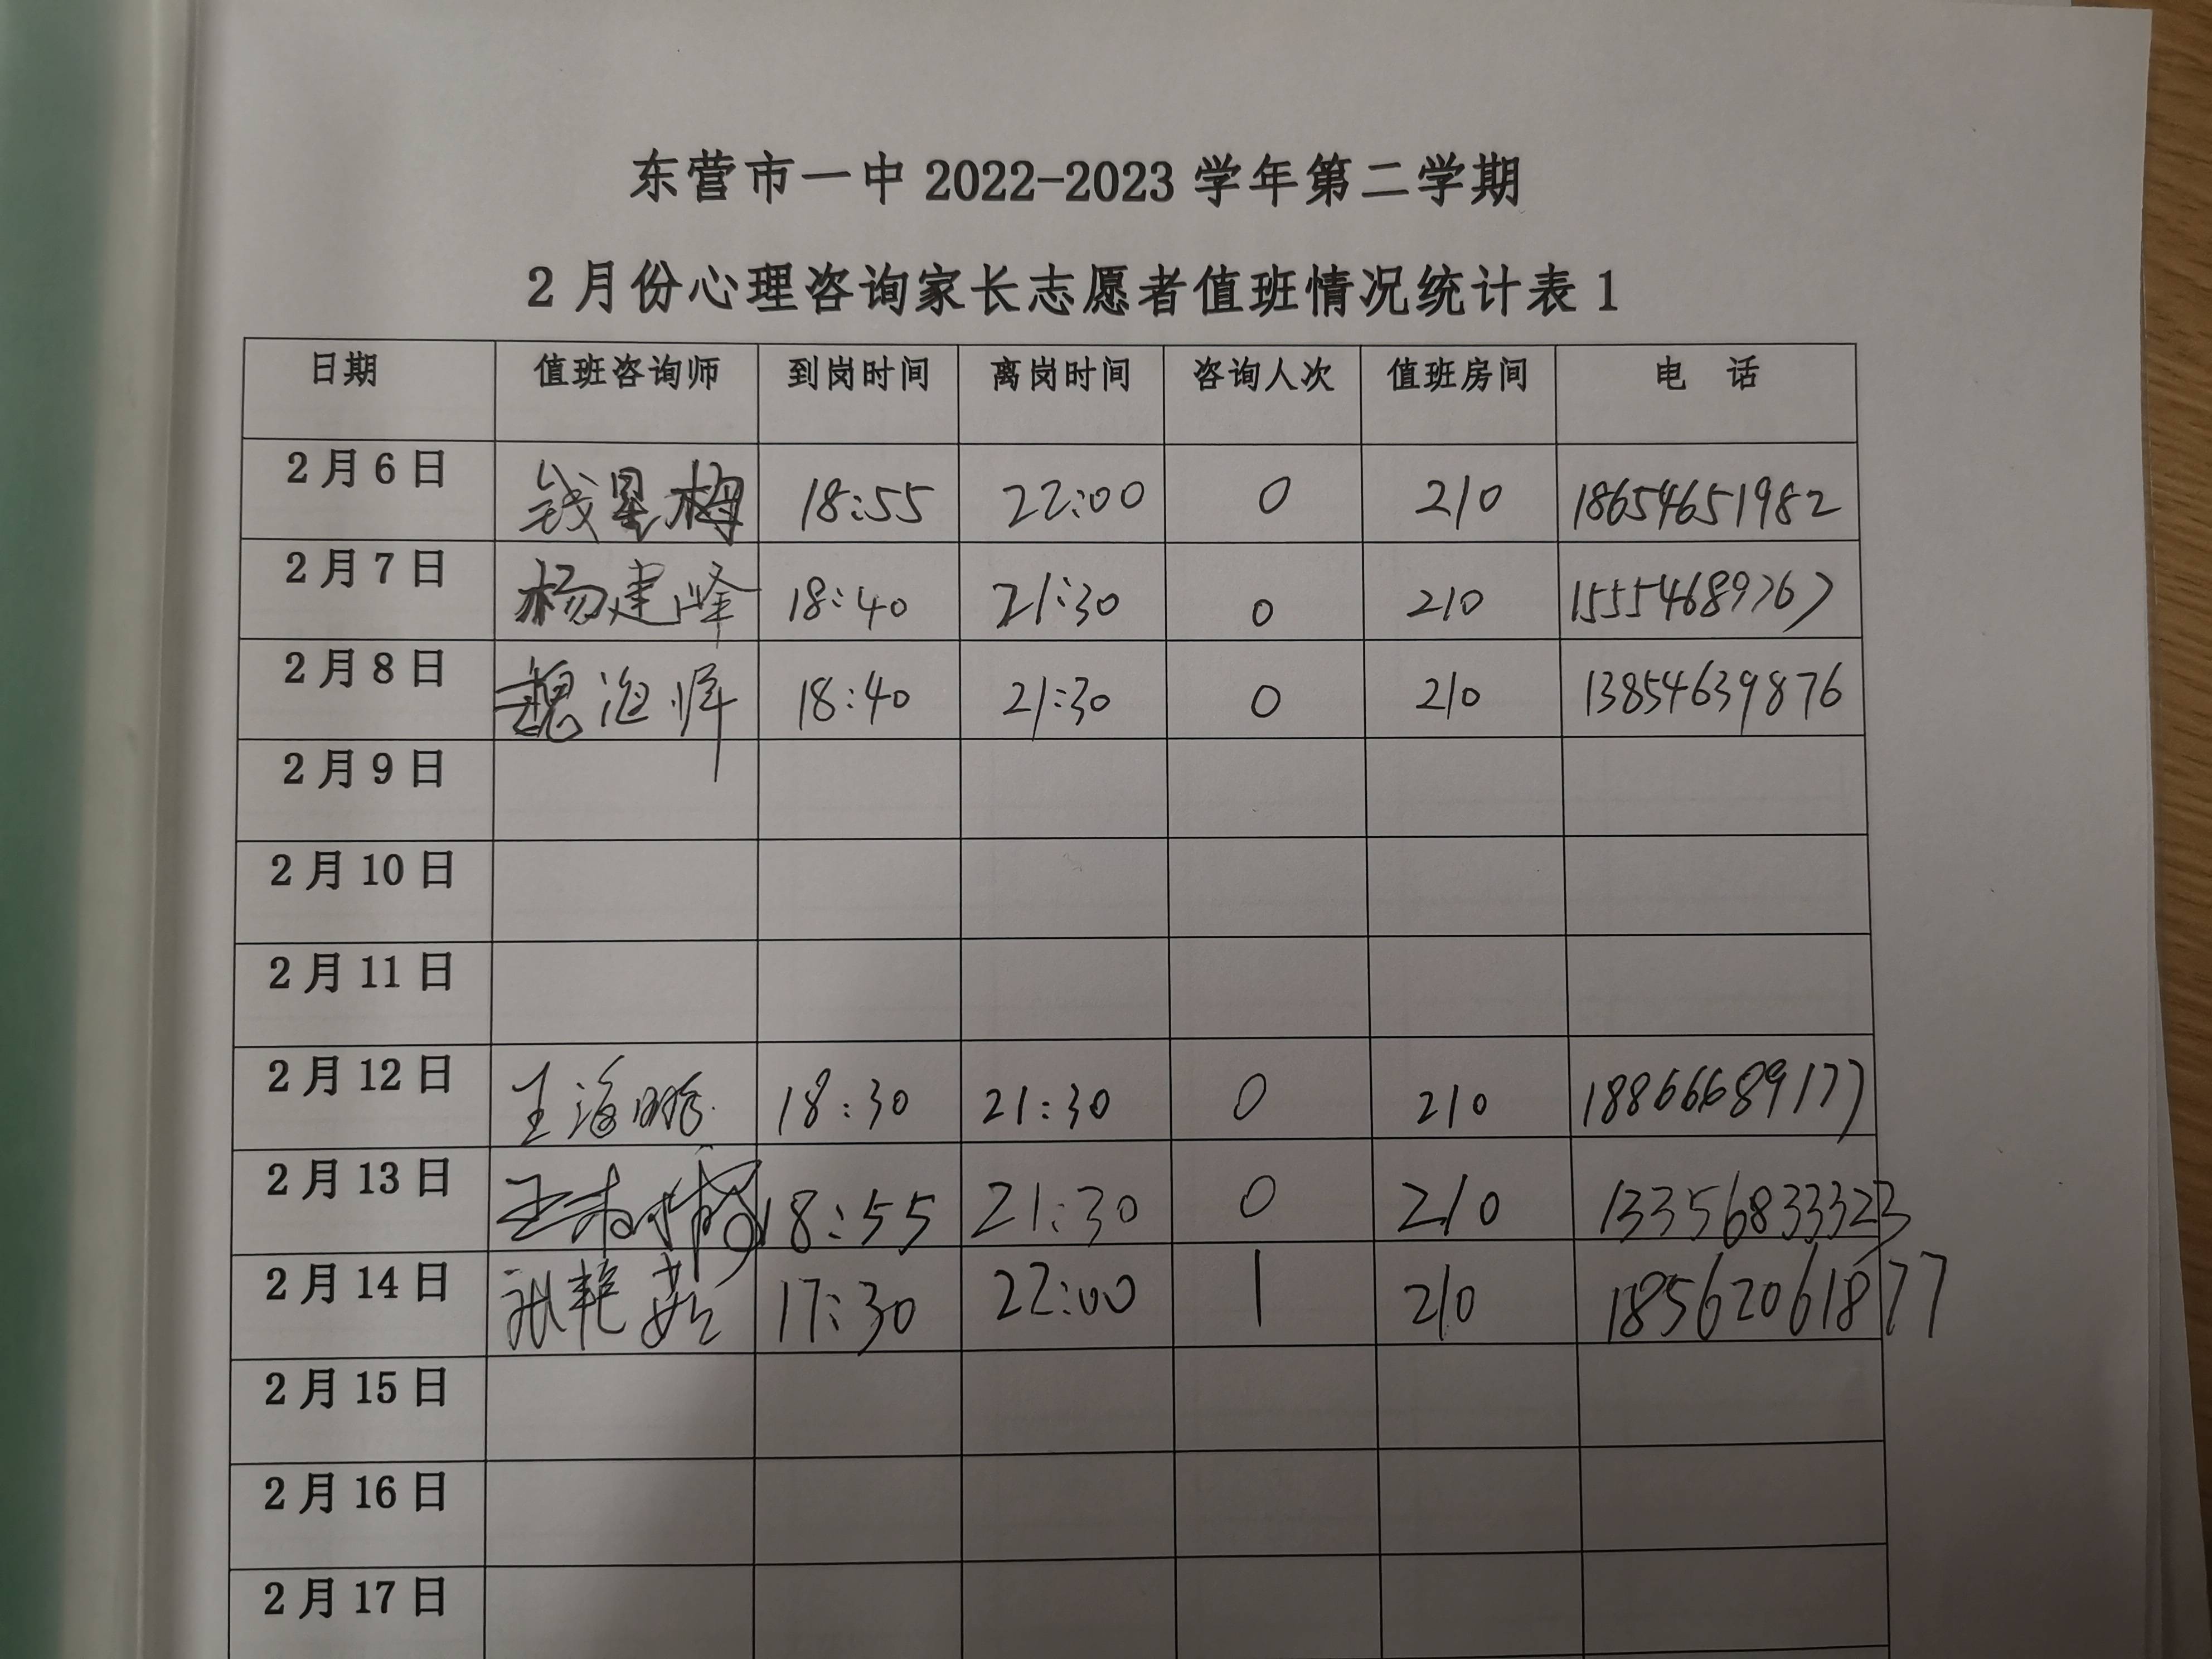 东营市一中 2022-2023 学年第二学期
2 月份心理咨询家长志愿者值班情况统计表 1
日期 值班咨询师 到岗时间 离岗时间 咨询人次 值班房间 电 话
2 月 6 日 钱星梅 18:55 22:00 0 210 18654651982
2 月 7 日 杨建峰 18:40 21:30 0 210 15554689767
2 月 8 日 魏海峰 18:40 21:30 0 210 13854639876
2 月 9 日
2 月 10 日
2 月 11 日
2 月 12 日 王海鹏 18:30 21:30 0 210 18866689177
2 月 13 日 18:55 21:30 0 210 13356833323
2 月 14 日 张艳茹 17:30 22:00 1 210 18562061877
2 月 15 日
2 月 16 日
2 月 17 日